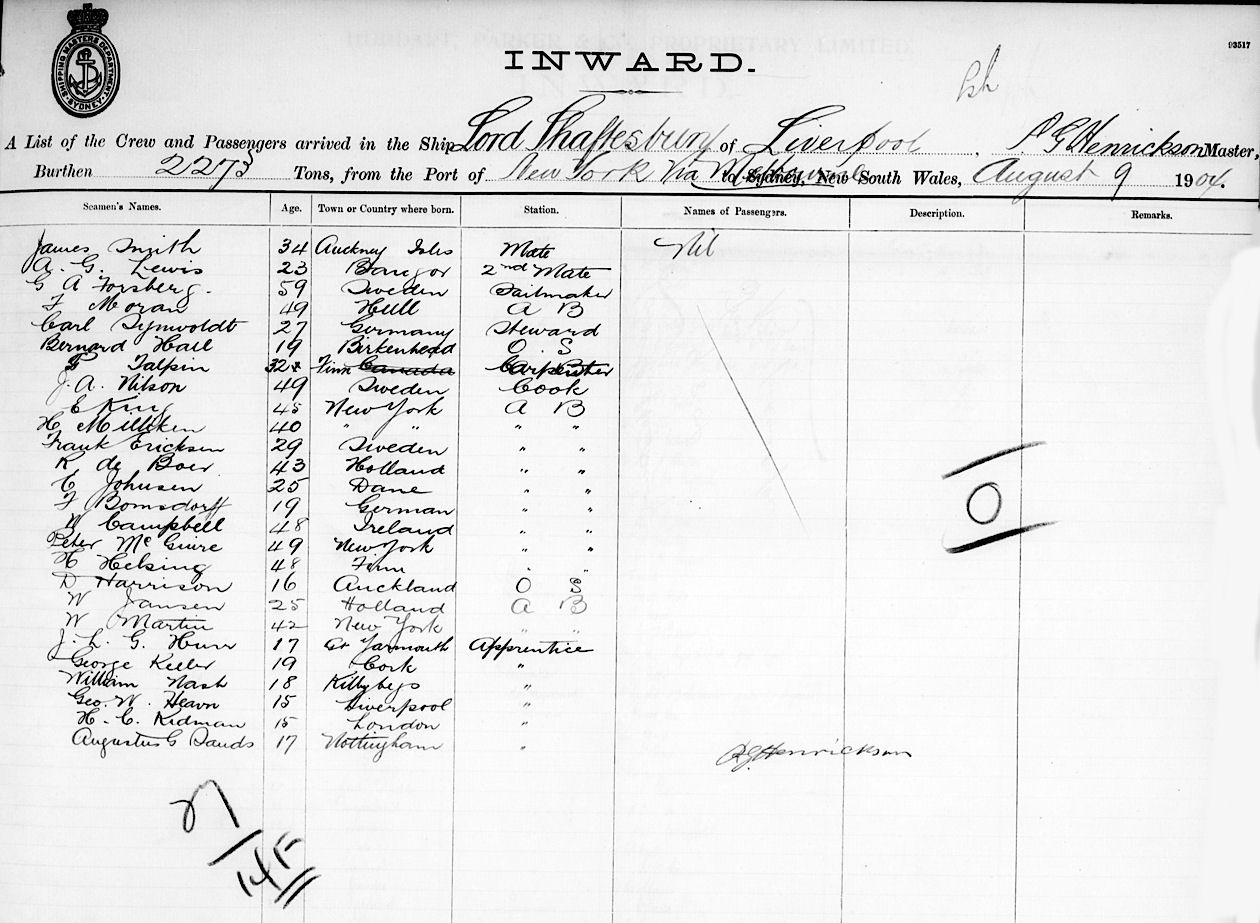 93517
SHIPPING MASTERS DEPARTMENT SYDNEY
INWARD.
A List of the Crew and Passengers arrived in the Ship Lord Shaftesbury of Liverpool, Henrickson Master,
Burthen 2273 Tons, from the Port of New York Via to Sydney, New South Wales, August 9 1904.
Seamen's Names. Age. Town or Country where born. Station. Names of Passengers. Description. Remarks.
James Smith 34 Isles Mate Nil
A. G. Lewis 23 Bangor 2nd Mate
G A Forsberg. 59 Sweden Sailmaker
F Moran 49 Hull A B
Carl 27 Germany Steward
Bernard Hall 19 Birkenhead O. S
Talpin 32 Finn Canada Carpenter
J. A. Nilson 49 Sweden Cook
E King 45 New York A B
H Milliken 40 " " " "
Frank Ericksen 29 Sweden " "
K de Boer 43 Holland " "
C Johnsen 25 Dane " "
F Bomsdorff 19 German " "
W Campbell 48 Ireland " "
Peter McGuire 49 New York " "
H Helsing 48 Finn " "
D Harrison 16 Auckland O S
W Jansen 25 Holland A B
W Martin 42 New York " "
J. L. G. 17 Gt Yarmouth Apprentice
George Keller 19 Cork "
William Nash 18 Killybegs "
Geo. W. Heavn 15 Liverpool "
H. C. Kidman 15 London "
Augustus G Sands 17 Nottingham "
Henrickson
0
27